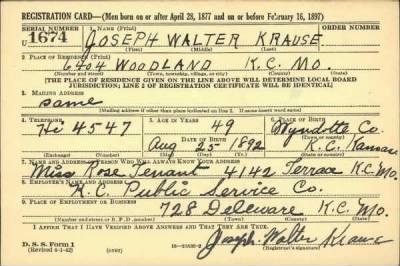 REGISTRATION CARD—(Men born on or after April 28, 1877 and on or before February 16, 1897)
SERIAL NUMBER 1. NAME (Print) ORDER NUMBER
U 1674 JOSEPH WALTER KRAUSE
(First) (Middle) (Last)
2. PLACE OF RESIDENCE (Print)
6404 WOODLAND K.C. MO.
(Number and street) (Town, township, village, or city) (County) (State)
[THE PLACE OF RESIDENCE GIVEN ON THE LINE ABOVE WILL DETERMINE LOCAL BOARD
JURISDICTION; LINE 2 OF REGISTRATION CERTIFICATE WILL BE IDENTICAL]
3. MAILING ADDRESS
same
[Mailing address if other than place indicated on line 2. If same insert word same]
4. TELEPHONE 5. AGE IN YEARS 6. PLACE OF BIRTH
Hi 4547 49 Wyndotte Co.
DATE OF BIRTH (Town or county)
Aug 25 1892 K.C. Kansas
(Exchange) (Number) (Mo.) (Day) (Yr.) (State or country)
7. NAME AND ADDRESS OF PERSON WHO WILL ALWAYS KNOW YOUR ADDRESS
Miss Rose Tenant 4142 Terrace K.C. Mo.
8. EMPLOYER'S NAME AND ADDRESS
K.C. Public Service Co.
9. PLACE OF EMPLOYMENT OR BUSINESS
728 Deleware K.C. Mo.
(Number and street or R. F. D. number) (Town) (County) (State)
I AFFIRM THAT I HAVE VERIFIED ABOVE ANSWERS AND THAT THEY ARE TRUE.
D. S. S. Form 1
(Revised 4-1-42) Joseph Walter Krause
(Registrant's signature)